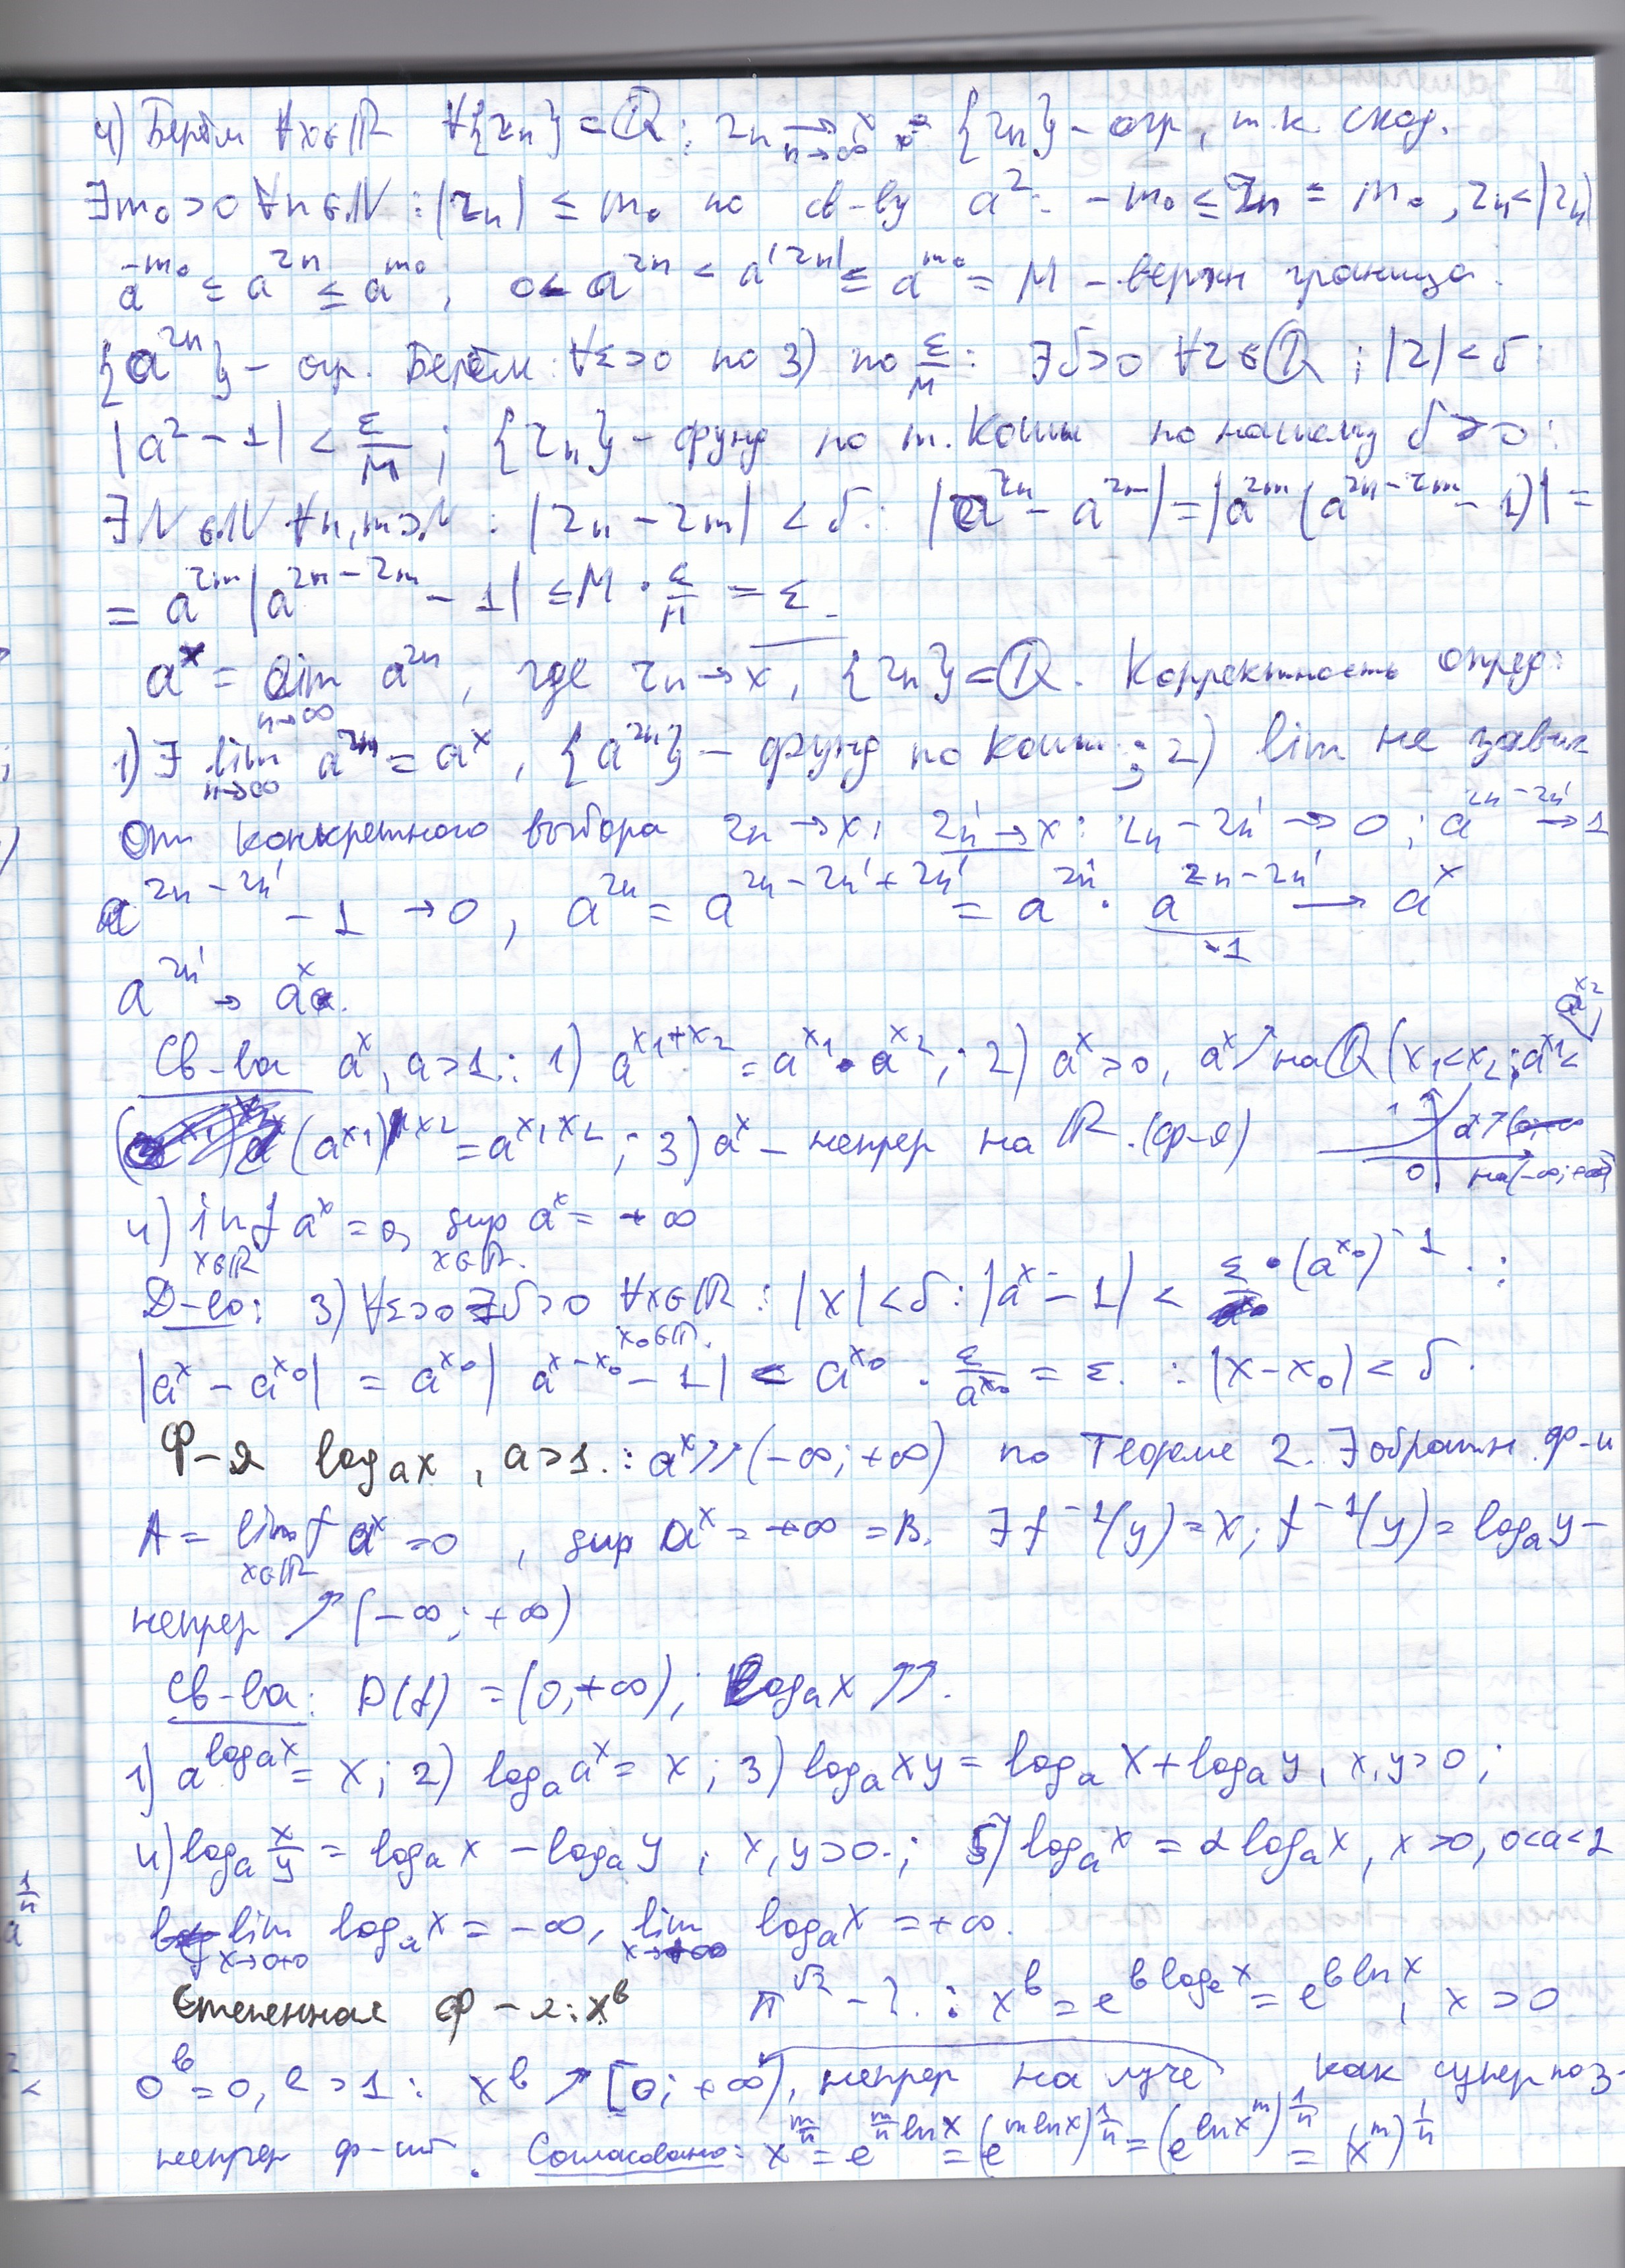 4) Берём ∀x∈ℝ ∀{rₙ} = ℚ : rₙ →ₙ→∞ x {rₙ} – огр, т.к. сход.
∃m₀>0 ∀n∈ℕ : |rₙ| ≤ m₀ по св-ву a^r : -m₀ ≤ rₙ ≤ m₀, rₙ<|rₙ|
a^(-m₀) ≤ a^(rₙ) ≤ a^(m₀), 0< a^(rₙ) < a^(|rₙ|) ≤ a^(m₀) = M – верхн граница.
{a^(rₙ)} – огр. Берём: ∀ε>0 по 3) по ε/M : ∃δ>0 ∀r∈ℚ ; |r|<δ :
|a^r – 1| < ε/M ; {rₙ} – фунд по т. Коши по нашему δ>0 :
∃N∈ℕ ∀n,m>N : |rₙ – rₘ| < δ : |a^(rₙ) – a^(rₘ)| = |a^(rₘ) (a^(rₙ–rₘ) – 1)| =
= a^(rₘ) |a^(rₙ–rₘ) – 1| ≤ M · ε/M = ε.
a^x = lim (n→∞) a^(rₙ), где rₙ → x, {rₙ} = ℚ. Корректность опред:
1) ∃ lim (n→∞) a^(rₙ) = a^x, {a^(rₙ)} – фунд по Коши ; 2) lim не завис
От конкретного выбора rₙ → x, rₙ' → x : rₙ – rₙ' → 0 ; a^(rₙ–rₙ') → 1
a^(rₙ–rₙ') – 1 → 0, a^(rₙ) = a^(rₙ–rₙ'+rₙ') = a^(rₙ') · a^(rₙ–rₙ') → a^x
→1
a^(rₙ') → a^x.
Св-ва a^x, a>1 : 1) a^(x₁+x₂) = a^(x₁) · a^(x₂) ; 2) a^x>0, a^x ↗ на ℚ (x₁<x₂ ; a^(x₁)< a^(x₂)
(a^(x₁))^(x₂) = a^(x₁x₂) ; 3) a^x – непрер на ℝ. (ф-я) 1 0 на(–∞;+∞)
4) inf (x∈ℝ) a^x = 0, sup (x∈ℝ) a^x = +∞
Д-во: 3) ∀ε>0 ∃δ>0 ∀x∈ℝ : |x| < δ : |a^x – 1| < ε · (a^(x₀))^(-1) :
x₀∈ℝ.
|a^x – a^(x₀)| = a^(x₀) | a^(x–x₀) – 1 | < a^(x₀) · ε/a^(x₀) = ε. : |x–x₀| < δ.
Ф-я logₐx, a>1. : a^x ↗↗ (–∞; +∞) по Теореме 2. ∃ обратн. ф-и
A = inf (x∈ℝ) a^x = 0, sup a^x = +∞ = B. ∃ f⁻¹(y) = x; f⁻¹(y) = logₐy –
непрер ↗ (–∞; +∞)
Св-ва: D(f) = (0,+∞); logₐx ↗↗.
1) a^(logₐx) = x; 2) logₐa^x = x; 3) logₐxy = logₐx + logₐy, x,y>0;
4) logₐ x/y = logₐx – logₐy, x,y>0.; 5) logₐx = α logₐx, x>0, 0<a<1
lim (x→0+0) logₐx = –∞, lim (x→+∞) logₐx = +∞.
Степенная ф-я: x^b π^√2 – ? : x^b = e^(b logₑx) = e^(b ln x), x>0
0^b = 0, e>1 : x^b ↗ [0; +∞), непрер на луче как суперпоз-
непрер ф-ий. Согласовано: x^(m/n) = e^(m/n ln x) = (e^(m ln x))^(1/n) = (e^(ln x^m))^(1/n) = (x^m)^(1/n)